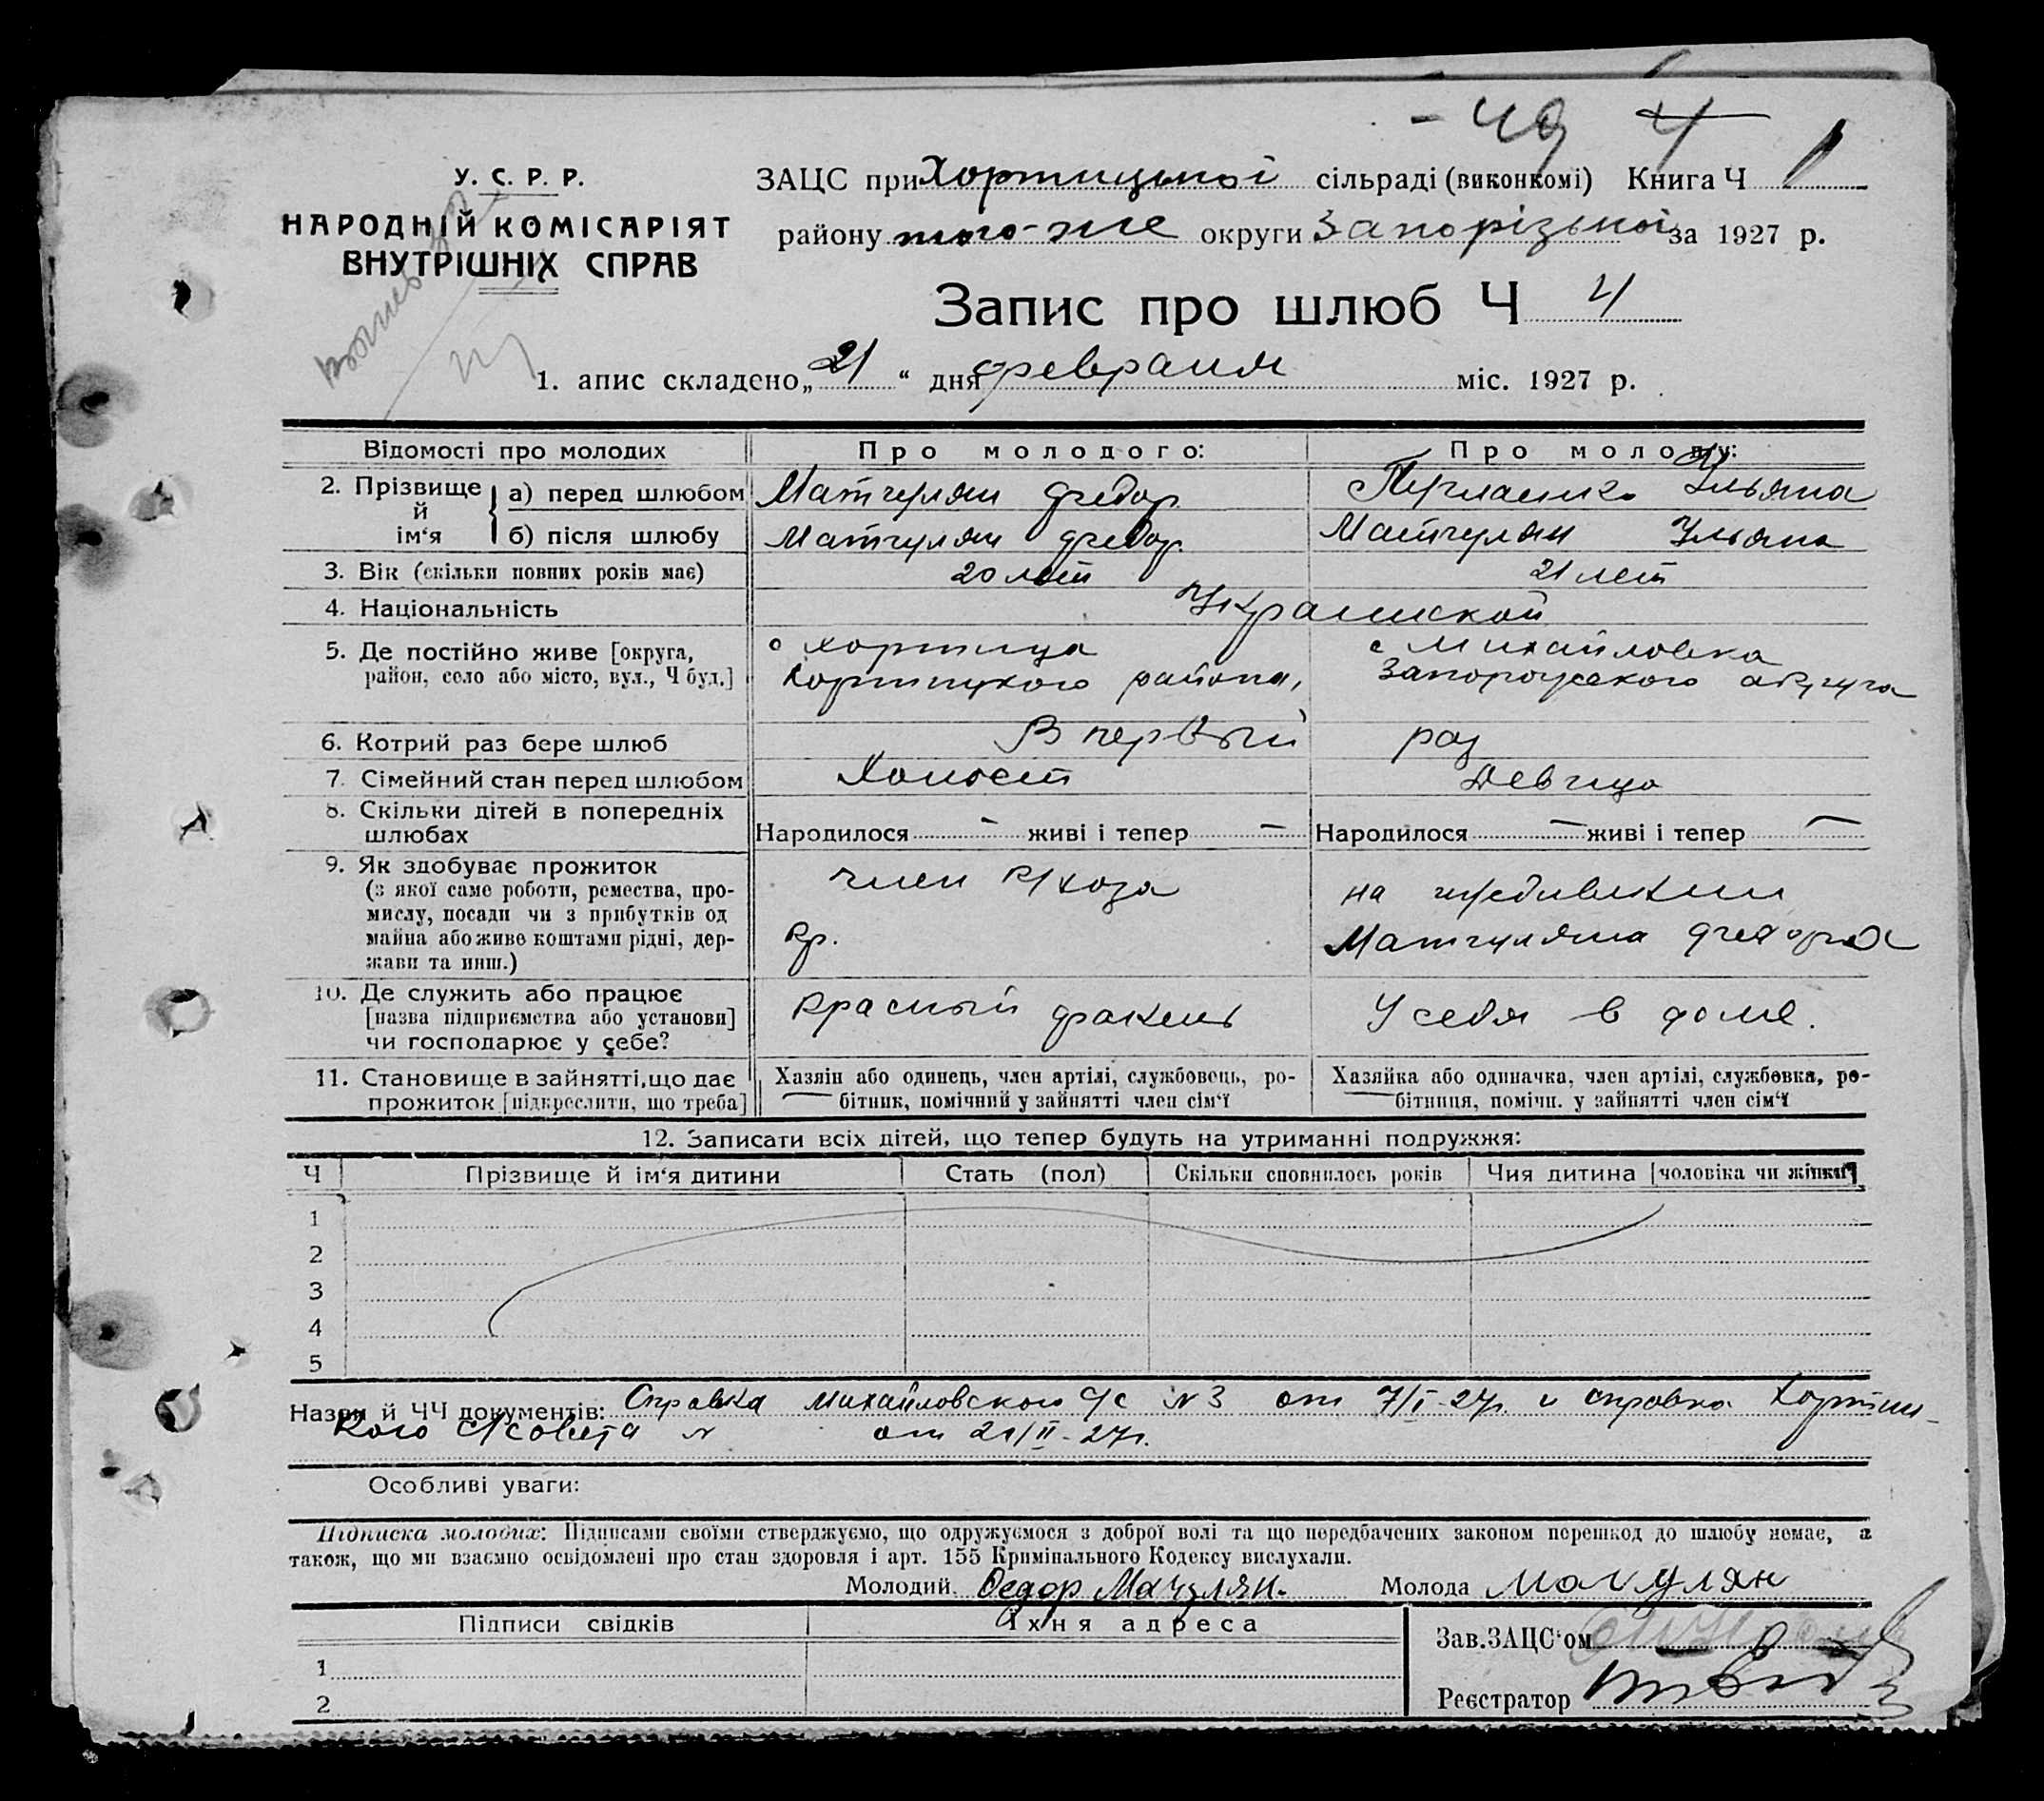 - 49 4
У. С. Р. Р.
НАРОДНІЙ КОМІСАРІЯТ
ВНУТРІШНІХ СПРАВ
ЗАЦС при Хортицької сільраді (виконкомі) Книга Ч 1
району того-же округи Запорізької за 1927 р.
Запис про шлюб Ч 4
1. апис складено „21“ дня февраля міс. 1927 р.
Відомості про молодих Про молодого: Про молоду:
2. Прізвище й ім‘я а) перед шлюбом Матчулян Федор Ульяна
б) після шлюбу Матчулян Федор Матчулян Ульяна
3. Вік (скільки повних років має) 20 лет 21 лет
4. Національність Украинской
5. Де постійно живе [округа, с Хортица с Михайловка
район, село або місто, вул., Ч буд.] Хортицкого района, Запорожского округа
6. Котрий раз бере шлюб В первый раз
7. Сімейний стан перед шлюбом Холост Девица
8. Скільки дітей в попередніх
шлюбах Народилося - живі і тепер - Народилося - живі і тепер -
9. Як здобуває прожиток
(з якої саме роботи, ремества, про- член к/хоза на иждивении
мислу, посади чи з прибутків од
майна або живе коштами рідні, дер- Кр. Матчуляна Федора
жави та инш.)
10. Де служить або працює
[назва підприємства або установи] Красный факель У себя в доме.
чи господарює у себе?
11. Становище в зайнятті, що дає Хазяїн або одинець, член артілі, службовець, ро- Хазяйка або одиначка, член артілі, службовка, ро-
прожиток [підкреслити, що треба] бітник, помічний у зайнятті член сім‘ї бітниця, помічн. у зайнятті член сім‘ї
12. Записати всіх дітей, що тепер будуть на утриманні подружжя:
Ч Прізвище й ім‘я дитини Стать (пол) Скільки сповнилось років Чия дитина [чоловіка чи жінки]
1
2
3
4
5
Назви й ЧЧ документів: Справка Михайловского с/с N 3 от 7/I-27г. и справка Хортиц-
кого с/совета N от 21/II-27г.
Особливі уваги:
Підписка молодих: Підписами своїми стверджуємо, що одружуємося з доброї волі та що передбачених законом перешкод до шлюбу немає, а
також, що ми взаємно освідомлені про стан здоровля і арт. 155 Кримінального Кодексу вислухали.
Молодий Федор Мачулян. Молода Мачулян
Підписи свідків Їхня адреса
Зав. ЗАЦС‘ом
1
Реєстратор
2